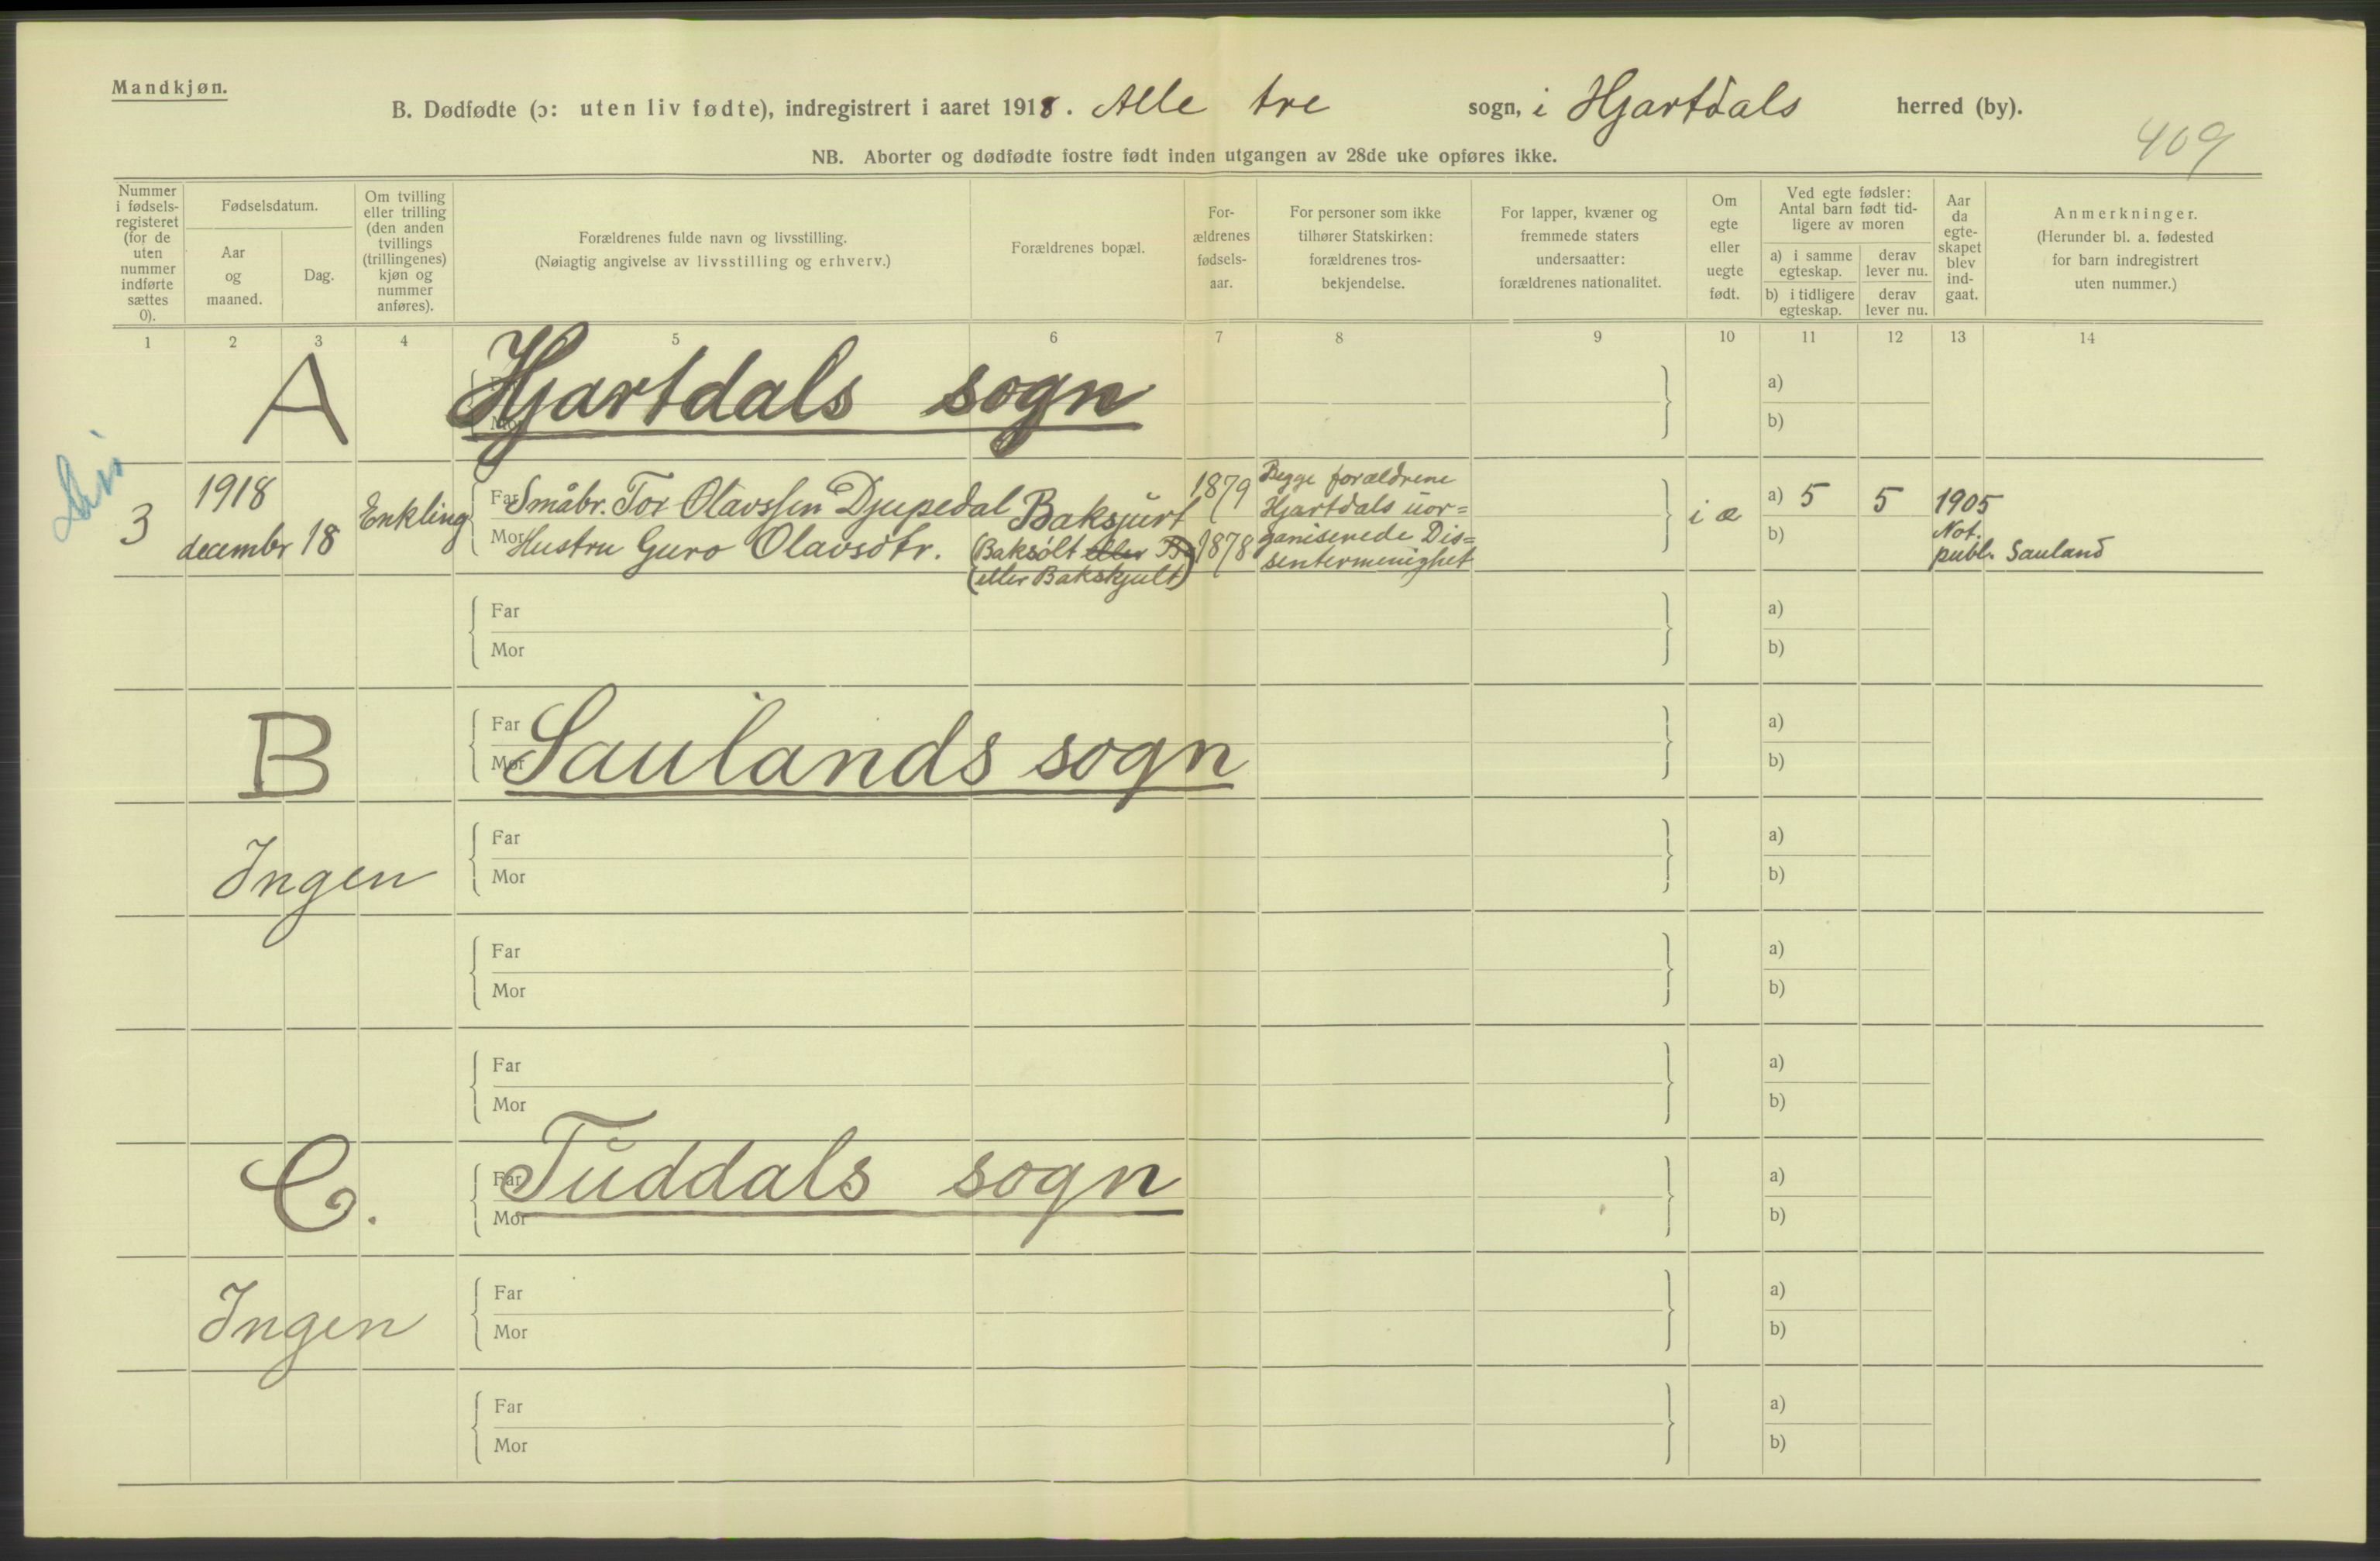 Mandkjøn.
B. Dødfødte (ɔ: uten liv fødte), indregistrert i aaret 1918. Alle tre sogn, i Hjartdals herred (by).
409
NB. Aborter og dødfødte fostre født inden utgangen av 28de uke opføres ikke.
Nummer
i fødsels-
registeret
(for de
uten
nummer
indførte
sættes
0).
Fødselsdatum.
Aar
og
maaned.
Dag.
Om tvilling
eller trilling
(den anden
tvillings
(trillingenes)
kjøn og
nummer
anføres).
Forældrenes fulde navn og livsstilling.
(Nøiagtig angivelse av livsstilling og erhverv.)
Forældrenes bopæl.
For-
ældrenes
fødsels-
aar.
For personer som ikke
tilhører Statskirken:
forældrenes tros-
bekjendelse.
For lapper, kvæner og
fremmede staters
undersaatter:
forældrenes nationalitet.
Om
egte
eller
uegte
født.
Ved egte fødsler:
Antal barn født tid-
ligere av moren
a) i samme
egteskap.
derav
lever nu.
b) i tidligere
egteskap.
derav
lever nu.
Aar
da
egte-
skapet
blev
ind-
gaat.
Anmerkninger.
(Herunder bl. a. fødested
for barn indregistrert
uten nummer.)
1 2 3 4 5 6 7 8 9 10 11 12 13 14
A Hjartdals sogn
Far
Mor
a)
b)
3
1918
decembr 18
Enkling
Far Småbr. Tor Olavssen Djupedal
Mor Hustru Guro Olavsdtr.
Baksjurt
(Baksølt eller B
(eller Bakskjult)
1879
1878
Begge forældrene
Hjartdals uor=
ganiserede Dis=
sentermenighet
i æ
a) 5 5
b)
1905
Not.
publ. Sauland
Far
Mor
a)
b)
B Saulands sogn
Far
Mor
a)
b)
Ingen
Far
Mor
a)
b)
Far
Mor
a)
b)
Far
Mor
a)
b)
C. Tuddals sogn
Far
Mor
a)
b)
Ingen
Far
Mor
a)
b)
Far
Mor
a)
b)